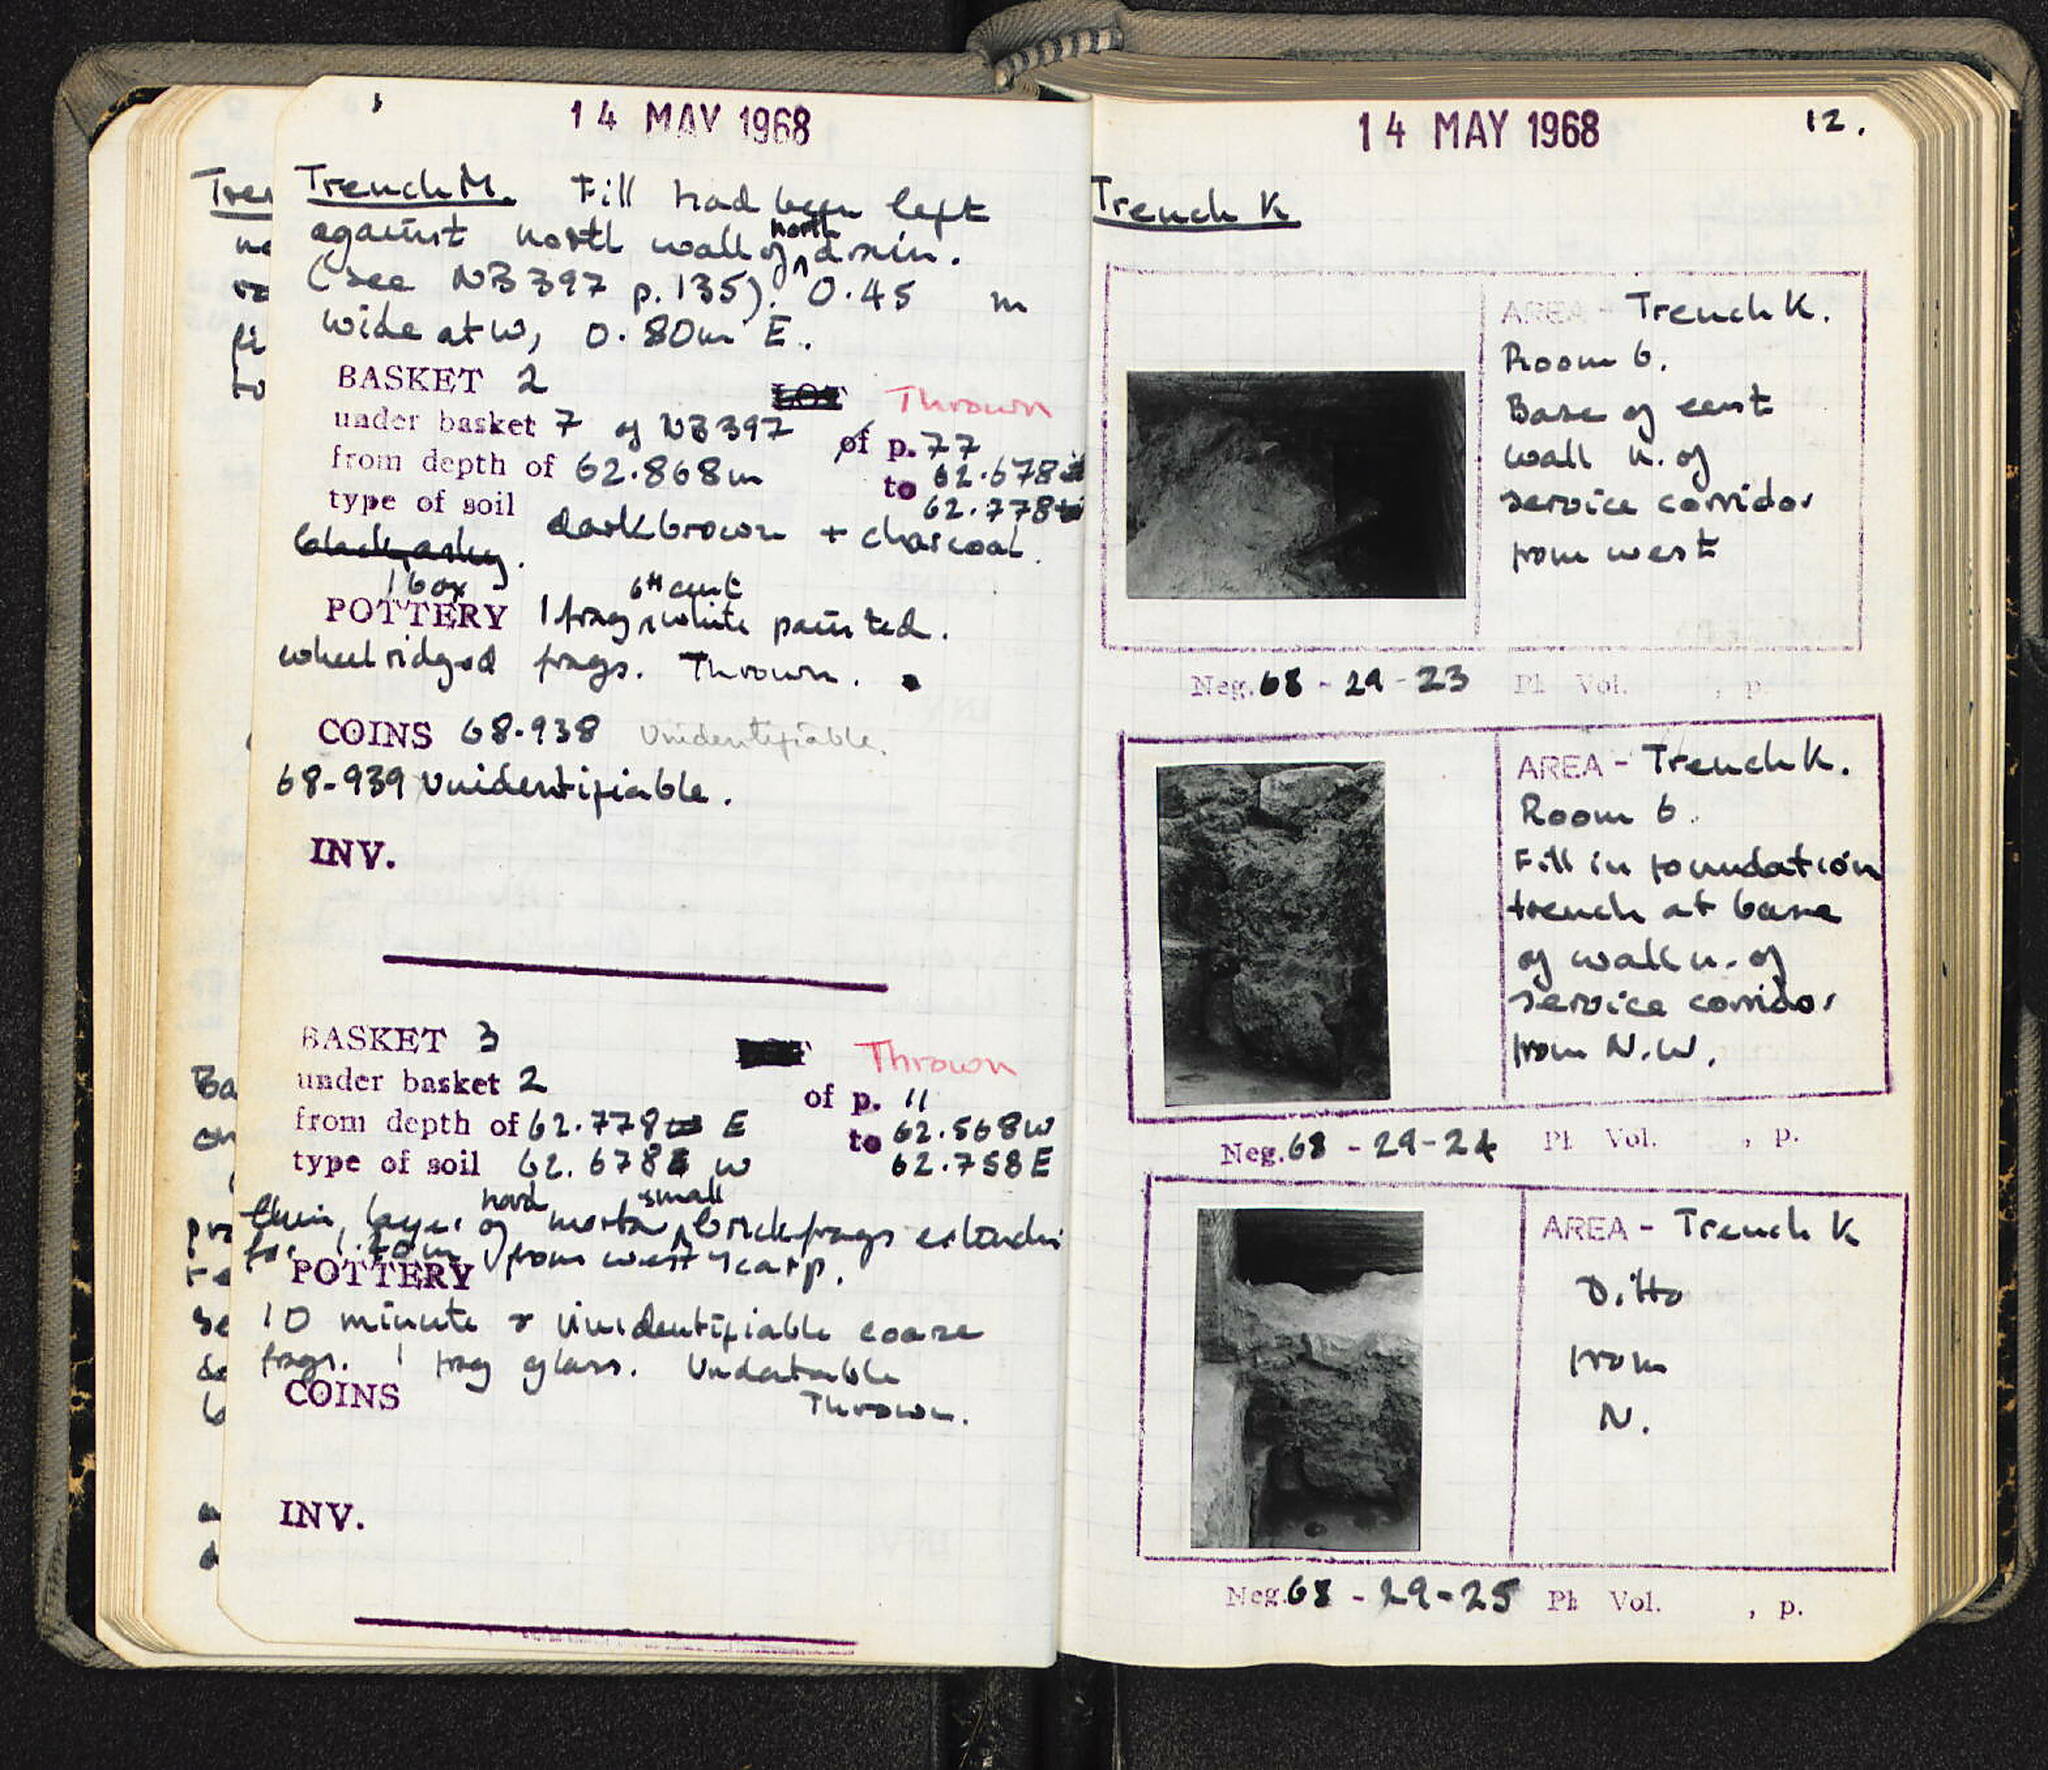 14 MAY 1968
Trench M. Fill had been left
against north wall of north drain.
(see NB 397 p. 135). 0.45 m
wide at W, 0.80m E.
BASKET 2 LOT Thrown
under basket 7 of NB 397 of p. 77
from depth of 62.868m to 62.678
type of soil 62.778
black, ashy. dark brown + charcoal.
1 box
POTTERY 1 frag 6th cent white painted.
wheelridged frags. Thrown.
COINS 68-938 Unidentifiable.
68-939 Unidentifiable.
INV.
BASKET 3 Thrown
under basket 2 of p. 11
from depth of 62.778 E to 62.568 W
type of soil 62.678 W 62.758 E
thin layer of hard mortar small brick frags extends
for 1.40m from west scarp.
POTTERY
10 minute & unidentifiable coarse
frags. 1 frag glass. Undatable
COINS Thrown.
INV.
14 MAY 1968 12.
Trench K
AREA - Trench K.
Room 6.
Base of east
wall n. of
service corridor
from west
Neg. 68 - 29 - 23 Ph Vol. , p.
AREA - Trench K.
Room 6.
Fill in foundation
trench at base
of wall n. of
service corridor
from N.W.
Neg. 68 - 29 - 24 Ph Vol. , p.
AREA - Trench K
Ditto
from
N.
Neg. 68 - 29 - 25 Ph Vol. , p.